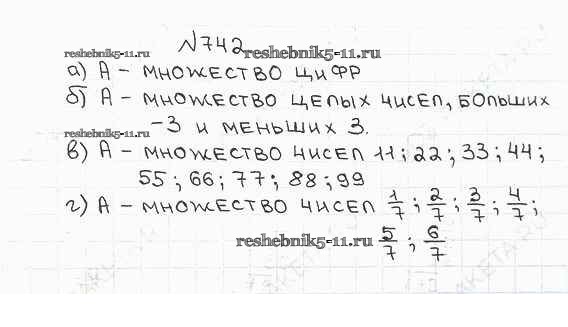 №742
reshebnik5-11.ru
reshebnik5-11.ru
а) А - множество цифр
б) А - множество целых чисел, больших
-3 и меньших 3.
reshebnik5-11.ru
в) А - множество чисел 11; 22; 33; 44;
55; 66; 77; 88; 99
г) А - множество чисел 1/7; 2/7; 3/7; 4/7;
reshebnik5-11.ru
5/7; 6/7